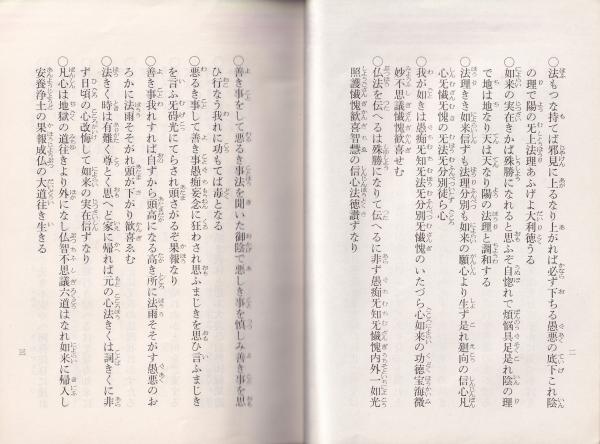 ○法もつな持てば邪見に上るなり上がれば必ず下ちる愚悪の底下これ陰
の理で陽の无上法理あふげよ大利徳うる
○如来の実在きかば殊勝になれると思ふぞ自惚れて煩悩具足是れ陰の理
で地は地なり天は天なり陽の法理と調和する
○法理ききき如来信ずも法理分別も如来の願心より生ず是れ廻向の信心凡
心无慚无愧の无法无分別徒ら心
○我が如きは愚痴无知无法无分別无慚愧のいたづら心如来の功徳宝海微
妙不思議懺愧歓喜せむ
○仏法を伝へるは殊勝になりて伝へるに非ず愚痴无知无慚愧内外一如光
照護懺愧歓喜智慧の信心法徳讃ずなり
二
○善き事をして悪るき事法を聞いた御陰で悪しき事を慎しみ善き事を思
ひ行なう我れに功もてば毒となる
○悪るき事して善き事愚痴妄念に狂わされ思ふまじきを思ひ言ふまじき
を言ふ无碍光にてらされ頭さがるぞ果報なり
○善き事我れすれば自ずから頭高になる高き所に法雨そそがす愚悪のお
ろかに法雨そそがれ頭が下がり歓喜ゑむ
○法きく時は有難く尊とく思へど家に帰れば元の心法きくは詞きくに非
ず日頃の心改悔して如来の実在信ずなり
○凡心は地獄の道往きより外になし仏智不思議六道はなれ如来に帰入し
安養浄土の果報成仏の大道往き生きる
三